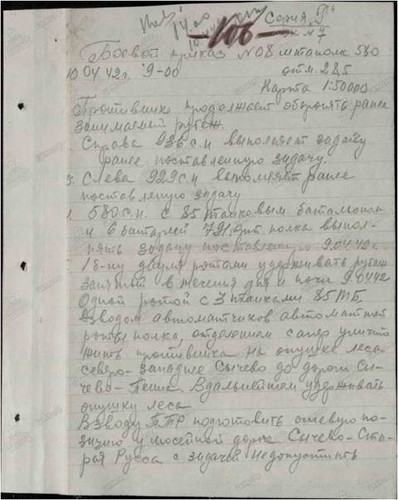 Серия Г
-106-
№7
Боевой приказ №08 штаполк 580
10.04.42г. 9-00 отм. 285
Карта 1:50000
Противник продолжает оборонять ранее
занимаемый рубеж.
Справа 936 с.п. выполняет задачу
ранее поставленную задачу.
3. Слева 929 с.п. выполняет ранее
поставленную задачу
580 с.п. с 85 танковым баталионом
и 6 батареей 791 арт полка выпол-
нять задачу поставленную 9.04.42г.
1 б-ну двумя ротами удерживать рубеж
занятый в течении дня и ночи 9.04.42
Одной ротой с 3 танками 85 ТБ.
Взводом автоматчиков автоматной
роты полка, отделением сапер уничто
жить противника на опушке леса
северо-западнее Сычево до дороги Сы-
чево-Пенна. В дальнейшем удерживать
опушку леса
Взводу ПТР подготовить огневую по-
зицию у шоссейной дороги Сычево-Ста-
рая Русса с задачей недопустить